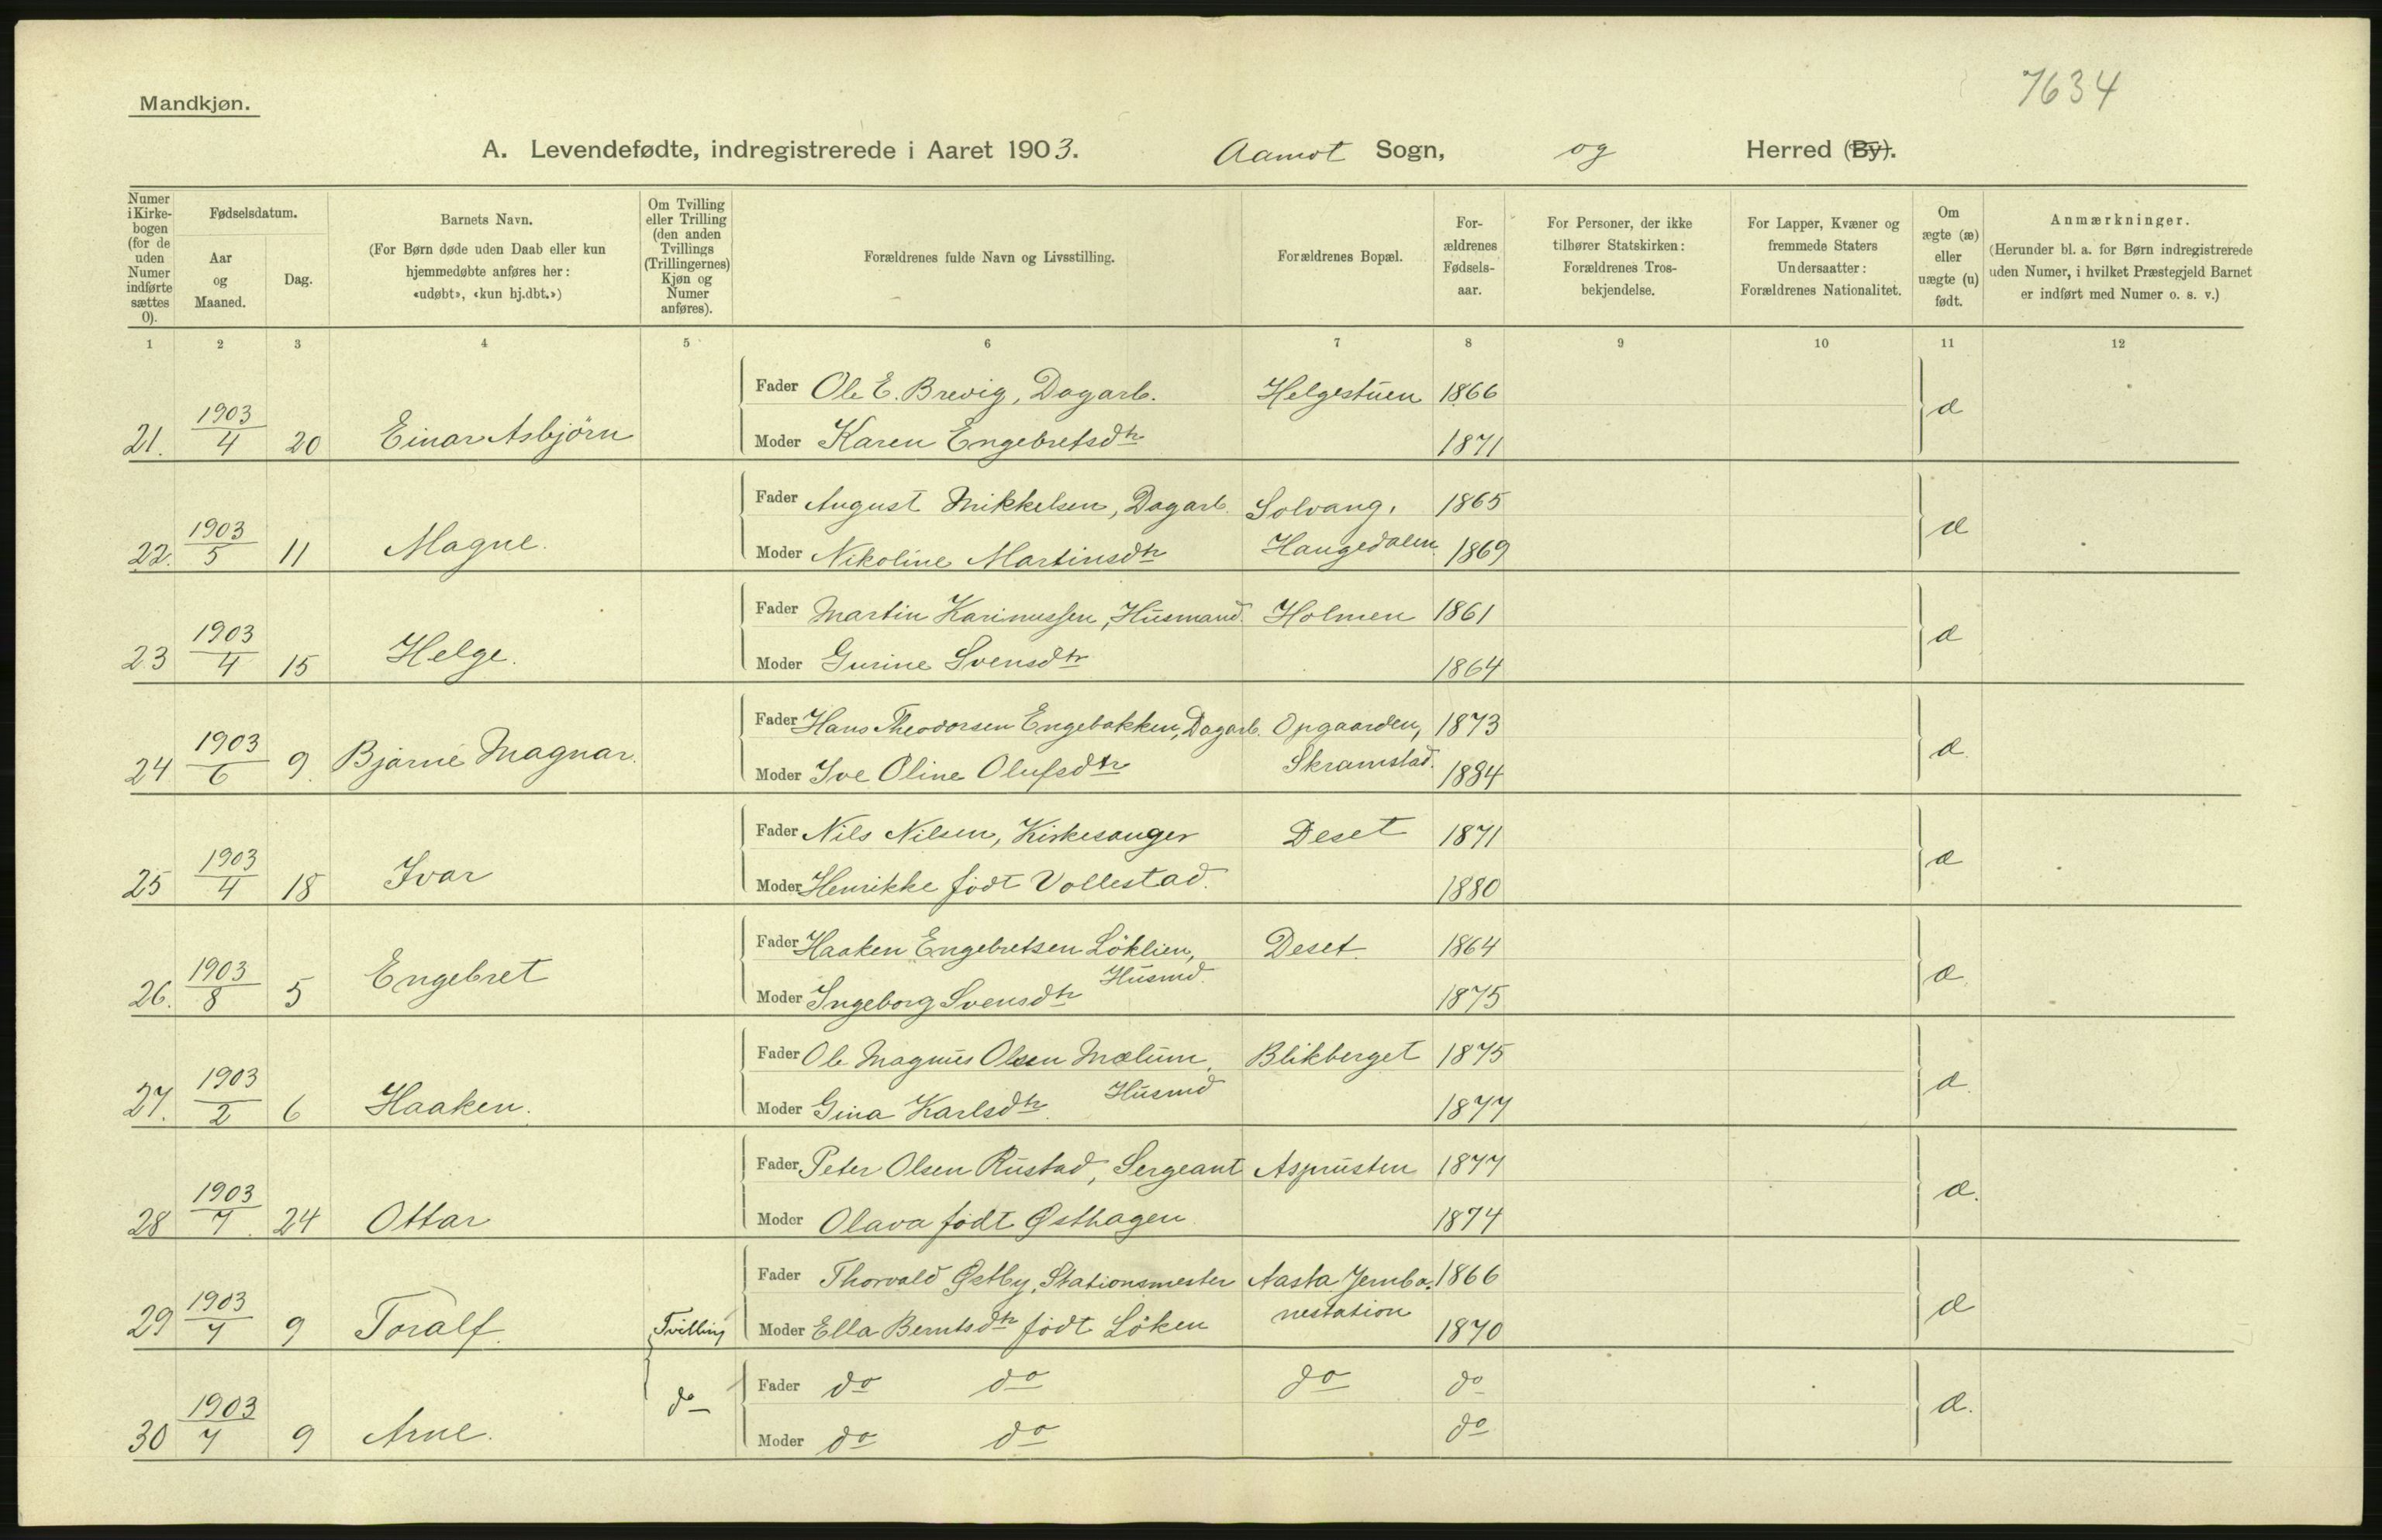 7634
Mandkjøn.
A. Levendefødte, indregistrerede i Aaret 1903. Aamot Sogn, og Herred (By).
Numer i Kirkebogen (for de uden Numer indførte sættes 0). Fødselsdatum. Aar og Maaned. Dag. Barnets Navn. (For Børn døde uden Daab eller kun hjemmedøbte anføres her: «udøbt», «kun hj.dbt.») Om Tvilling eller Trilling (den anden Tvillings (Trillingernes) Kjøn og Numer anføres). Forældrenes fulde Navn og Livsstilling. Forældrenes Bopæl. For-ældrenes Fødsels-aar. For Personer, der ikke tilhører Statskirken: Forældrenes Tros-bekjendelse. For Lapper, Kvæner og fremmede Staters Undersaatter: Forældrenes Nationalitet. Om ægte (æ) eller uægte (u) født. Anmærkninger. (Herunder bl. a. for Børn indregistrerede uden Numer, i hvilket Præstegjeld Barnet er indført med Numer o. s. v.)
1 2 3 4 5 6 7 8 9 10 11 12
Fader Ole E. Brevig, Dagarb. Helgestuen 1866
21. 1903/4 20 Einar Asbjörn Moder Karen Engebretsdtr 1871 æ
Fader August Mikkelsen, Dagarb. Solvang, 1865
22. 1903/5 11 Magne. Moder Nikoline Martinsdtr Haugedalen 1869 æ
Fader Martin Karinussen, Husmand. Holmen 1861
23 1903/4 15 Helge. Moder Gurine Svensdtr 1864 æ
Fader Hans Theodorsen Engebakken, Dagarb. Opgaarden, 1873
24 1903/6 9. Bjarne Magnar. Moder Ive Oline Olufsdtr Skramstad. 1884 æ.
Fader Nils Nilsen, Kirkesanger Deset 1871
25 1903/4 18 Ivar Moder Henrikke födt Vollestad. 1880 æ
Fader Haaken Engebretsen Löklien, Husmd. Deset. 1864
26. 1903/8 5 Engebret Moder Ingeborg Svensdtr 1875 æ.
Fader Ole Magnus Olsen Mælum, Husmd Blikberget 1875
27. 1903/2 6 Haaken. Moder Gina Karlsdtr. 1877 æ.
Fader Peter Olsen Rustad, Sergeant Asprusten 1877
28 1903/7. 24 Ottar Moder Olava födt Østhagen 1874 æ.
Fader Thorvald Østby, Stationsmester Aasta Jernba- 1866
29 1903/7 9 Toralf. Tvilling Moder Ella Berntsdtr födt Löken nestation 1870 æ
Fader do do do do
30 1903/7 9 Arne. do Moder do do do æ.